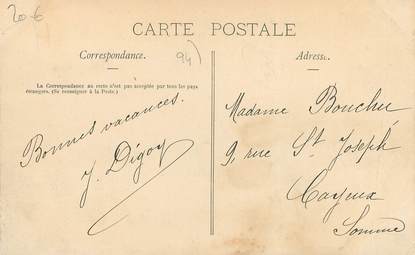 20-6
CARTE POSTALE
Correspondance.
94
Adresse.
La Correspondance au recto n'est pas acceptée par tous les pays
étrangers. (Se renseigner à la Poste.)
Bonnes vacances.
Y. Digoy
Madame Boucher
9, rue St Joseph
Cayeux
Somme